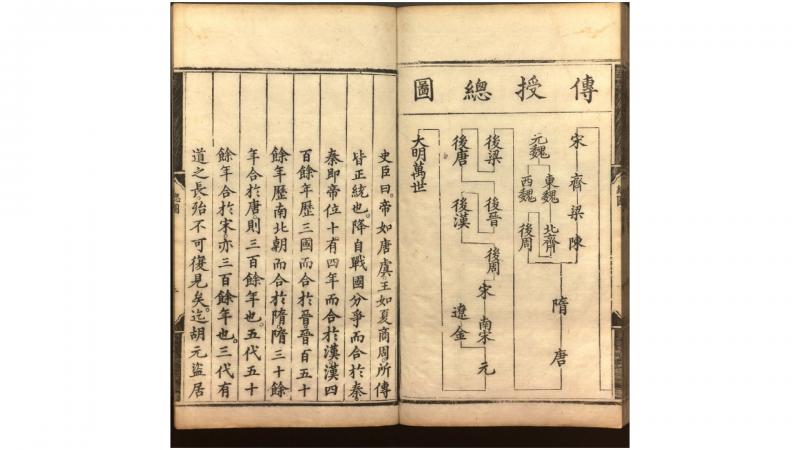 傳授總圖
宋齊梁陳
隋唐
元魏
東魏
北齊
西魏
後周
後梁
後晉
後周
宋南宋元
後唐
後漢
遼金
大明萬世
史臣曰。帝如唐虞王如夏商周所傳
皆正統也。降自戰國分爭而合於秦。
秦即帝位十有四年而合於漢漢四
百餘年歷三國而合於晉晉百五十
餘年歷南北朝而合於隋隋三十餘
年合於唐則三百餘年也。五代五十
餘年合於宋亦三百餘年也。三代有
道之長殆不可復見矣。迄胡元盜居
總圖